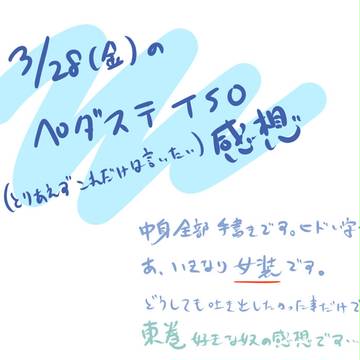 3/28(金)の
ペダステTSO
(とりあえずこれだけは言いたい)感想
中身全部手書きです。ヒドい字
あ、いきなり女装です。
どうしても吐き出したかった事だけで
東巻好きな奴の感想です…